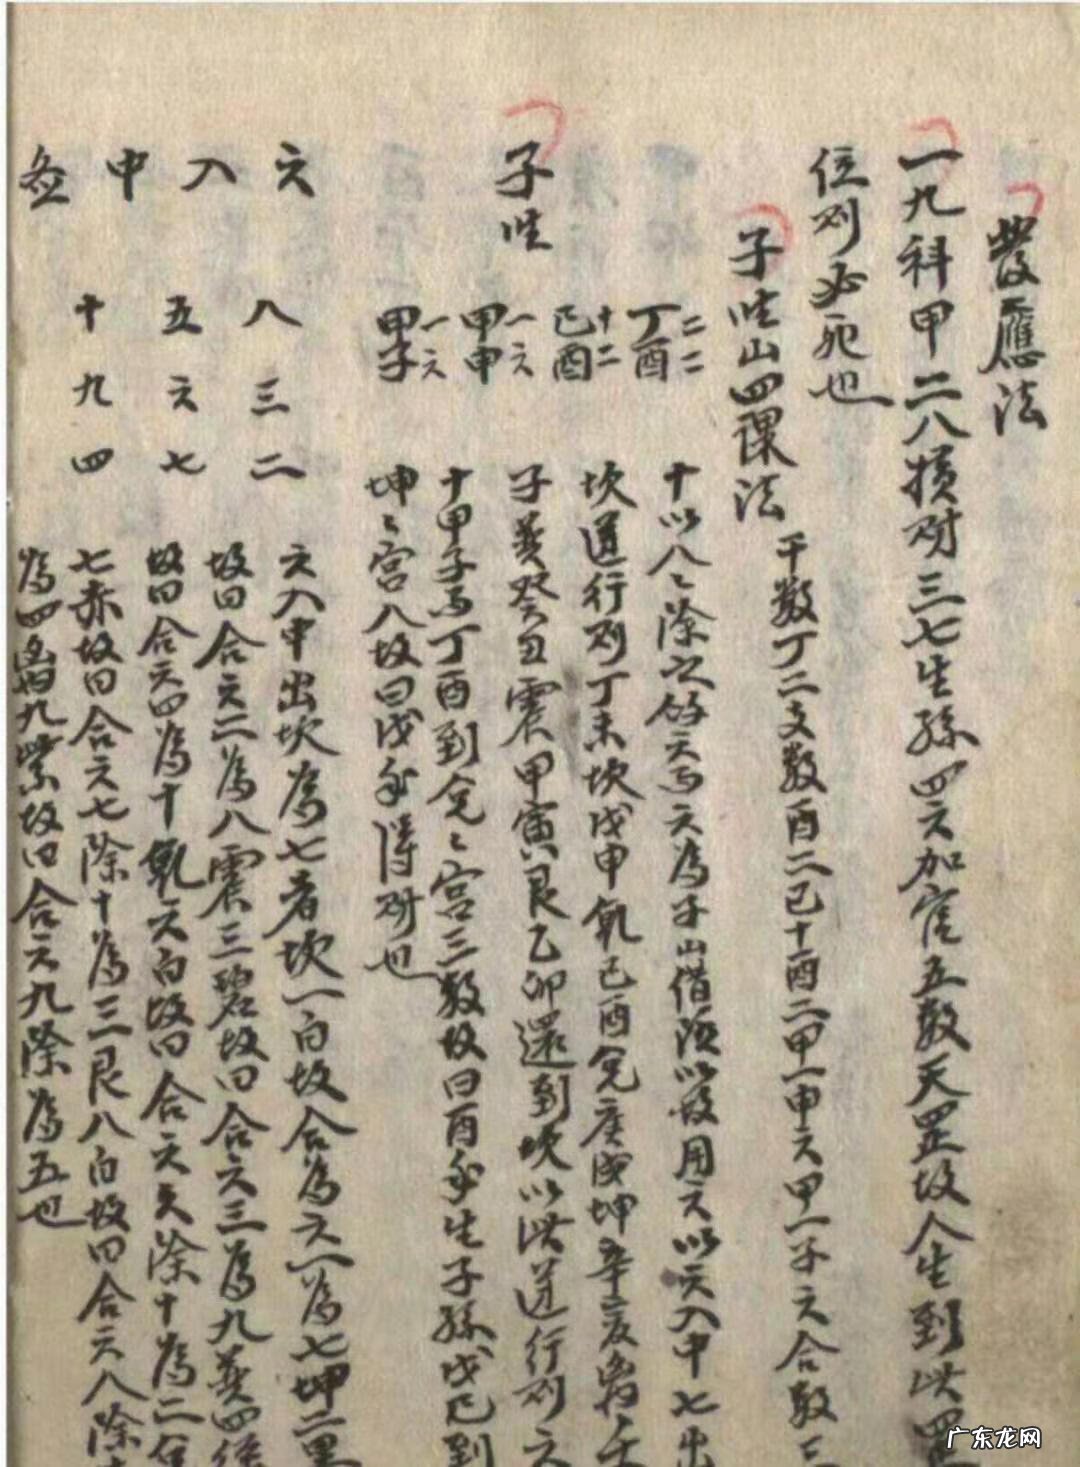 發應法
一九科甲二八損財三七生孫四六加官五數天罡故人生到此四
位別必死也
子坐山四課法
干數丁二支數酉二己十酉二甲一申六甲一子六合數三
十以八八除之餘六天為子山借須以故用六以六入中七出
坎逆行則丁未坎戊申乾己酉兌庚戌坤辛亥離壬
子巽癸丑震甲寅艮乙卯還到坎以此逆行則六
十甲子丁酉到兌兌宮三數故曰酉年生子孫戊己到
坤坤宮八故曰戊年得財也
丁酉 二二
己酉 十二
甲申 一六
甲子 一六
子坐
六入中出坎為七者坎一白故合為六一為七坤二黑
故曰合六二為八震三碧故曰合六三為九巽四綠
故曰合六四為十乾六白故曰合六六除十為二兌
七赤故曰合六七除十為三艮八白故曰合六八除十
為四離九紫故曰合六九除為五也
六入中
八三二
五六七
十九四